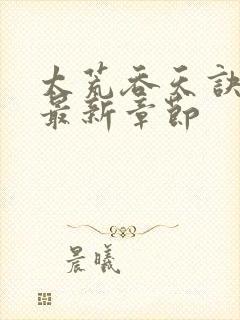 大荒吞天诀
最新章节
晨曦